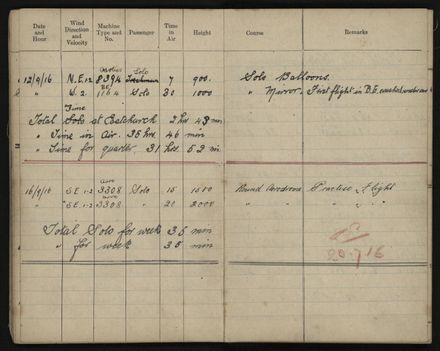 Date and Hour Wind Direction and Velocity Machine Type and No. Passenger Time in Air Height Course Remarks
12/9/16 N.E.12 8394 Solo 7 900. Solo Balloons.
" 2 BE 1164 Solo 30 1000 " Mirror. First flight in B.E.
Time
Total Solo at 2 hrs 43 min
" Time in Air. 35 hrs 46 min
" Time for quarter. 31 hrs. 52 min
16/9/16 S.E 1-2 Avro 3308 Solo 15 1500 Round Aerodrome Practise flight
" S.E 1-2 Avro 3308 " 20 2000 " " " "
Total Solo for week 35 min
" for week 35 min